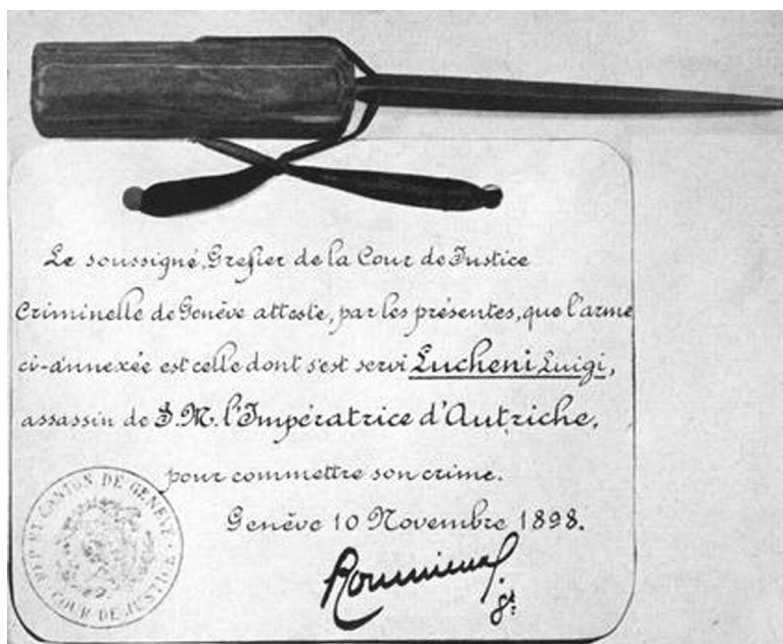 Le soussigné, Grefier de la Cour de Justice
Criminelle de Genève atteste, par les présentes, que l'arme
ci-annexée est celle dont s'est servi Lucheni Luigi,
assassin de S. M. l'Impératrice d'Autriche,
pour commettre son crime.
Genève 10 Novembre 1898.
RÉP. ET CANTON DE GENÈVE
COUR DE JUSTICE